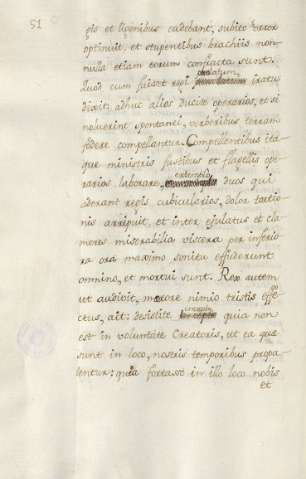 51
glo et ligonibus cædebant, subito terror
optinuit, et stupentibus brachiis non-
nulla etiam eorum confracta sunt.
delatum
Quod cum fuisset regi iratus
dixit: adhuc alios ducite operarios, et si
noluerint spontanei, verberibus terram
fodere compellantur. Compellentibus ita-
que ministris fustibus et flagellis ope-
rarios laborare, duos qui
extemplo
aderant regis cubicularios, dolor
nis arripuit, et inter ejulatus et cla-
mores miserabilia viscera per inferio-
ra ora maximo sonitu effuderunt
omnino, et mortui sunt. Rex autem
ut audivit, mærore nimio tristis effe-
ctus, ait: desistite quia non
est in voluntate Creatoris, ut ea quæ
sunt in loco, nostris temporibus propa-
lentur: quia fortasse in illo loco nobis
et